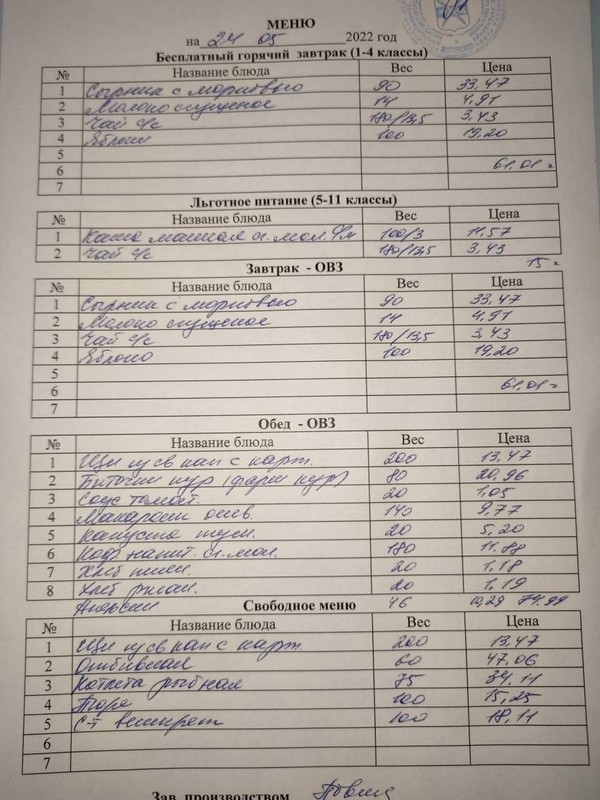 МЕНЮ
на 24 05 2022 год
Бесплатный горячий завтрак (1-4 классы)
№ Название блюда Вес Цена
1 Сырники с морковью 90 33,47
2 Молоко сгущеное 14 4,91
3 Чай с/с 180/13,5 3,43
4 Яблоки 100 19,20
5
6 61,01
7
Льготное питание (5-11 классы)
№ Название блюда Вес Цена
1 Каша манная 100/3 11,57
2 Чай с/с 180/13,5 3,43
15
Завтрак - ОВЗ
№ Название блюда Вес Цена
1 Сырники с морковью 90 33,47
2 Молоко сгущеное 14 4,91
3 Чай с/с 180/13,5 3,43
4 Яблоко 100 19,20
5
6 61,01
7
Обед - ОВЗ
№ Название блюда Вес Цена
1 Щи из св кап с карт. 200 13,47
2 Биточки кур (фарш кур) 80 20,96
3 Соус томат. 20 1,05
4 Макароны отв. 140 9,77
5 Капуста туш. 20 5,20
6 Коф. напит. 180 11,88
7 Хлеб пшен. 20 1,18
8 Хлеб ржан. 20 1,19
46 10,29 74.99
Свободное меню
№ Название блюда Вес Цена
1 Щи из св кап с карт. 200 13,47
2 Отбивная 60 47,06
3 Котлета рыбная 75 34,11
4 Пюре 100 15,25
5 С-т винегрет 100 18,11
6
7
Зав. производством